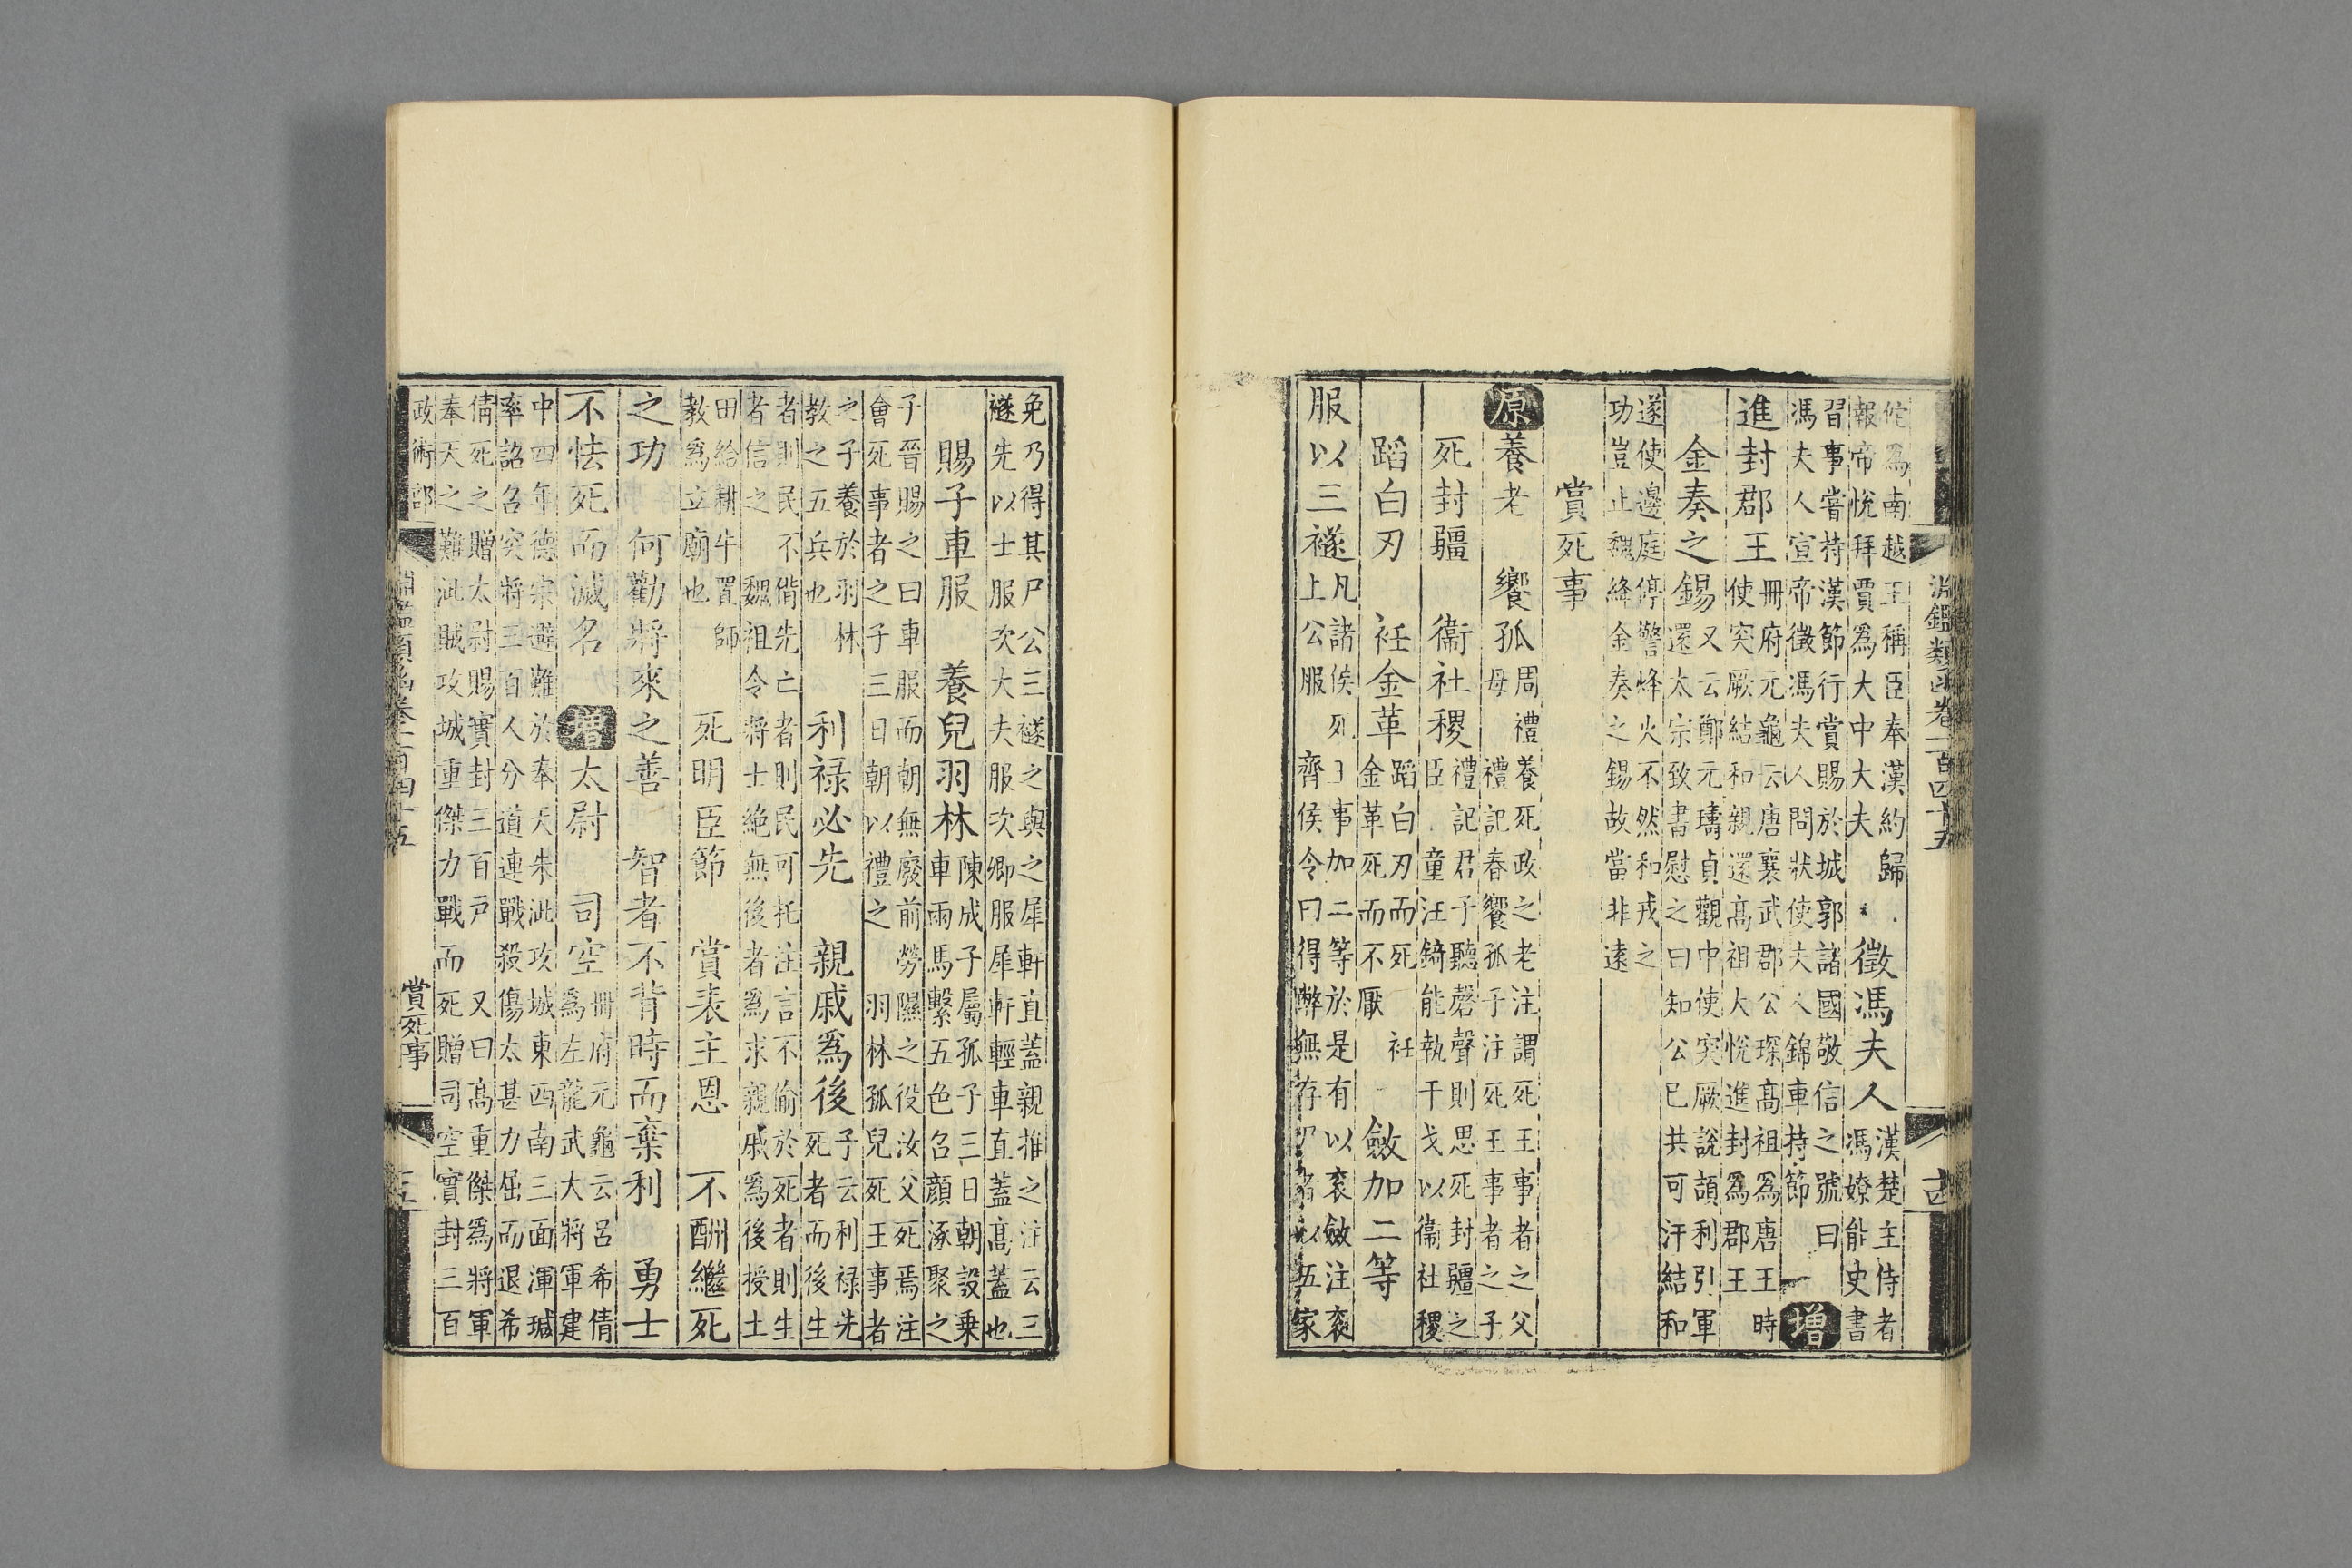 淵鑑類函卷二百四十五
佗爲南越王稱臣奉漢約歸
報帝悅拜賈爲大中大夫
徵馮夫人
漢楚主侍者
馮嫽能史書
習事嘗持漢節行賞賜於城郭諸國敬信之號曰
馮夫人宣帝徵馮夫人問狀使夫人錦車持節
增
進封郡王
冊府元龜云唐襄武郡公琛髙祖爲唐王時
使突厥結和親還髙祖大悅進封爲郡王
金奏之錫
又云鄭元璹貞觀中使突厥說頡利引軍
還太宗致書慰之曰知公已共可汗結和
遂使邊庭停警烽火不然和戎之
功豈止魏絳金奏之錫故當非遠
賞死事
原養老 饗孤
周禮養死政之老注謂死王事者之父
母 禮記春饗孤子注死王事者之子
死封疆 衞社稷
禮記君子聽磬聲則思死封疆之
臣 童汪錡能執干戈以衞社稷
蹈白刃 衽金革
蹈白刃而死 衽
金革死而不厭
斂加二等
服以三襚
凡諸侯死王事加二等於是有以衮斂注衮
上公服 齊侯令曰得弊無存者以五家
免乃得其尸公三襚之與之犀軒直蓋親推之注云三
襚先以士服次大夫服次卿服犀軒輕車直蓋髙蓋也
賜子車服 養兒羽林
陳成子屬孤子三日朝設乗
車兩馬繫五色召顔涿聚之
子晉賜之曰車服而朝無廢前勞隰之役汝父死焉注
會死事者之子三日朝以禮之 羽林孤兒死王事者
之子養於羽林
教之五兵也
利禄必先 親戚爲後
子云利禄先
死者而後生
者則民不偝先亡者則民可托注言不偷於死者則生
者信之 魏祖令將士絶無後者爲求親戚爲後授土
田給耕牛置師
教爲立廟也
死明臣節 賞表主恩 不酬繼死
之功 何勸將來之善 智者不背時而棄利 勇士
不怯死而滅名 增太尉 司空
冊府元龜云呂希倩
爲左龍武大將軍建
中四年德宗避難於奉天朱泚攻城東西南三面渾瑊
率詔召突將三百人分道連戰殺傷太甚力屈而退希
倩死之贈太尉賜實封三百戸 又曰髙重傑爲將軍
奉天之難泚賊攻城重傑力戰而死贈司空實封三百
政術部 淵鑑類函卷二百四十五 賞死事